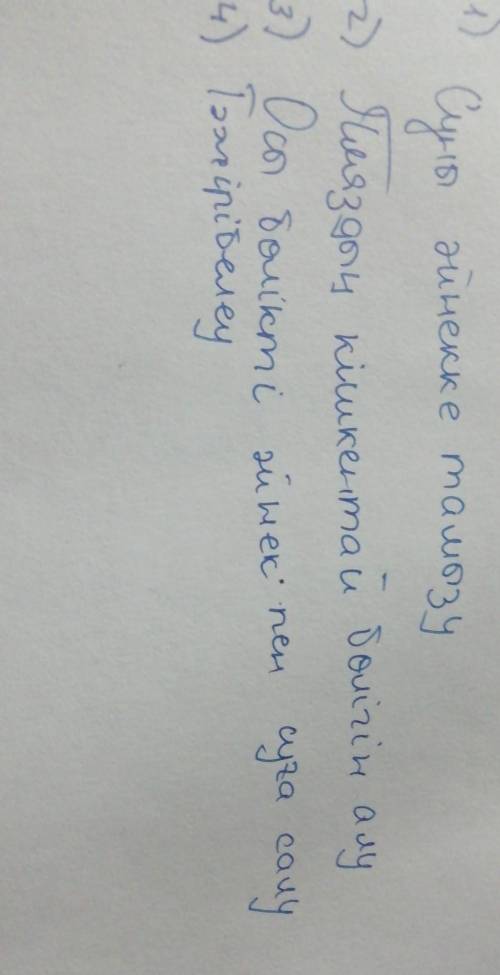 1) Суны әйнекке тамызу
2) Пияздың кішкентай бөлігін алу
3) Осы бөлікті әйнек пен суға салу
4) Тәжірібелеу